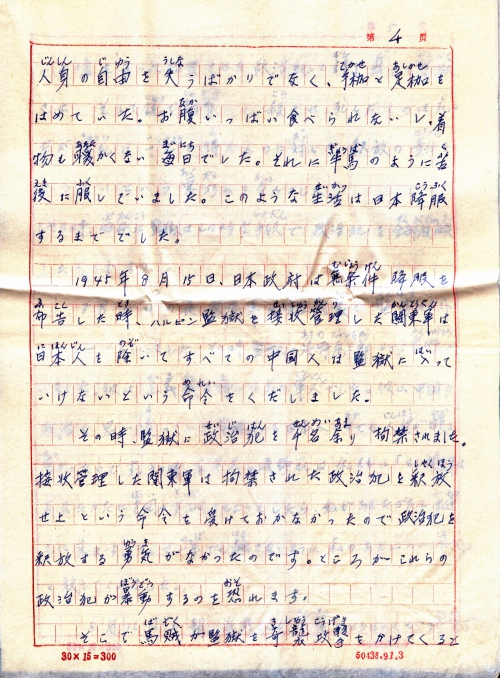 第 4 页
人身の自由を失うばかりでなく、手枷と足枷を
はめていた。お腹いっぱい食べられないし、着
物も暖かくない毎日でした。それに牛馬のように苦
役に服していました。このような生活は日本降服
するまででした。
1945年8月15日、日本政府は無条件降服を
布告した時、ハルビン監獄を接收管理した関東軍は
日本人を除いてすべての中国人は監獄に入って
いけないという命令をくだしました。
その時、監獄に政治犯を千名余り拘禁されました。
接收管理した関東軍は拘禁された政治犯を釈放
せよという命令を受けておかなかったので政治犯を
釈放する勇気がなかったのです。ところがこれらの
政治犯が暴動するのを恐れます。
そこで馬賊が監獄を 攻撃をかけてくると
30×15=300 50438.91.3